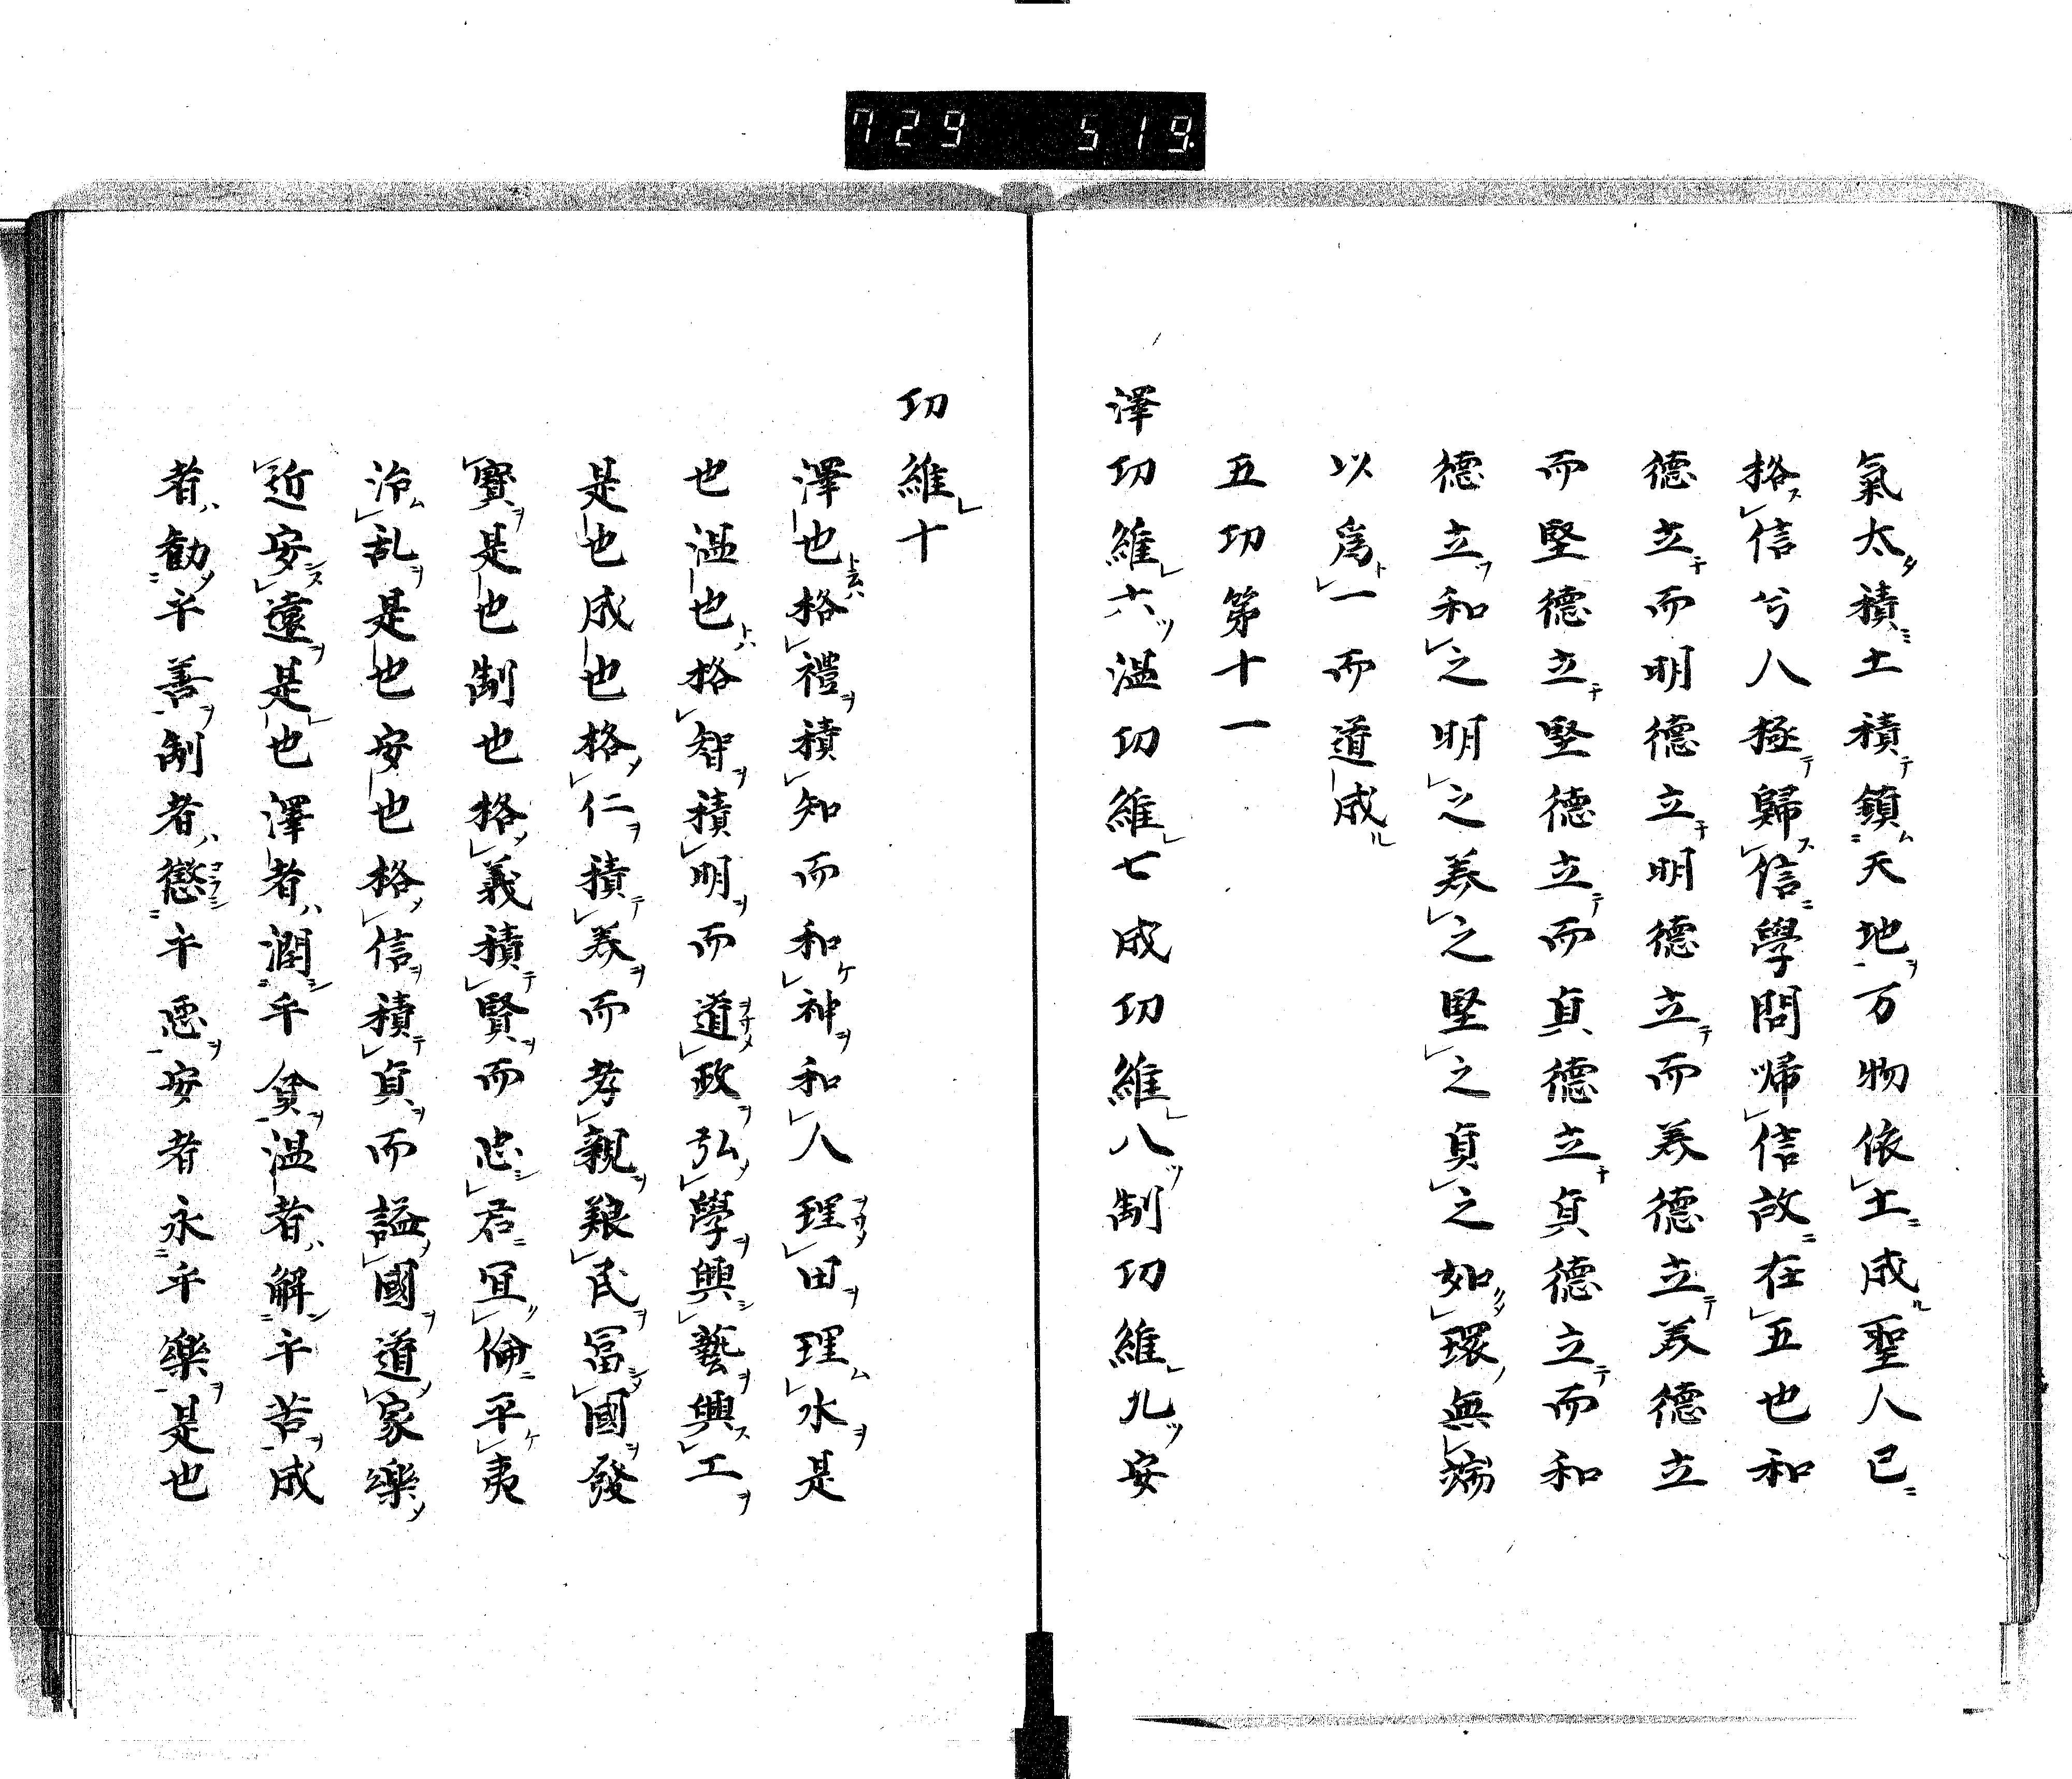 729 519.
氣太積土積鎮天地万物依土成聖人已
格信兮人極歸信學問帰信故在五也和
德立而明德立明德立而養德立養德立
而堅德立堅德立而貞德立貞德立而和
德立和之明之養之堅之貞之如環無端
以爲一而道成
五功第十一
澤功維六溫功維七成功維八制功維九安
功維十
澤也格禮積知而和神和人理田理水是
也溫也格智積明而道政弘學興藝興工
是也成也格仁積養而孝親艱民冨國發
寶是也制也格義積賢而忠君宜倫平夷
治乱是也安也格信積貞而謚國道家樂
近安遠是也澤者潤乎貧溫者解乎苦成
者勧乎善制者懲乎惡安者永乎樂是也